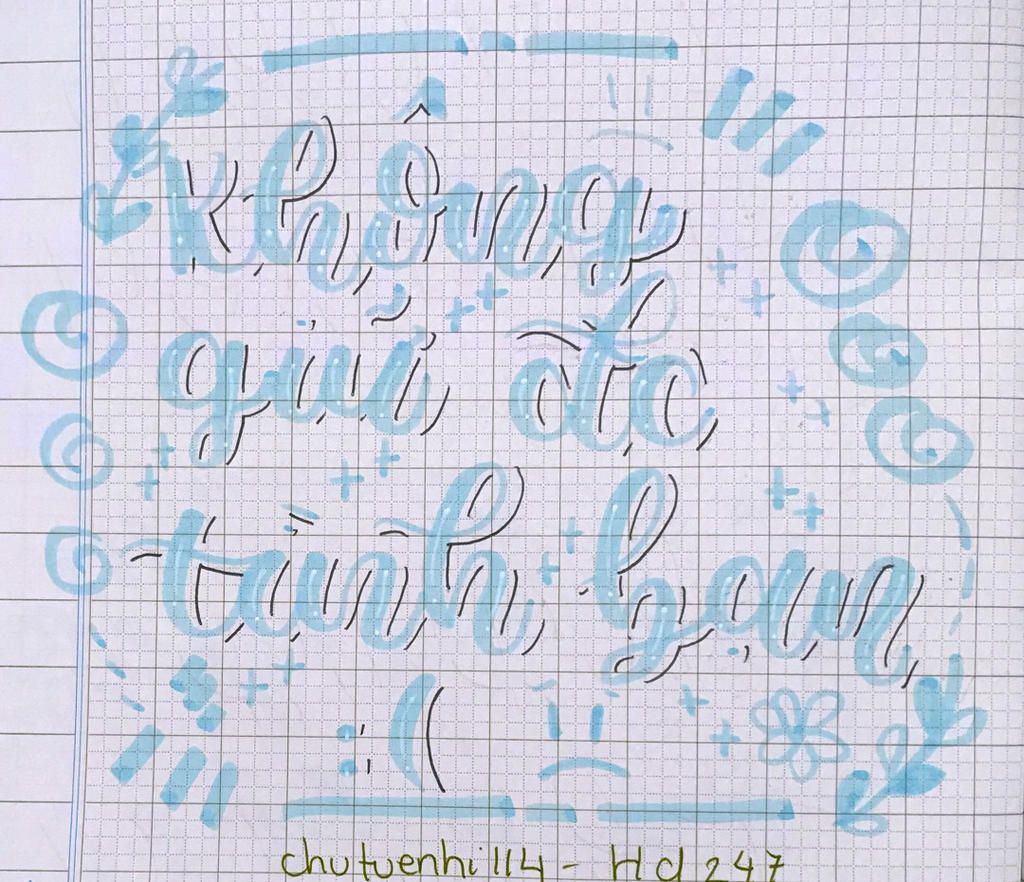 Không
giữ đc
tình bạn
:(
chutuenhi114 - Hd247